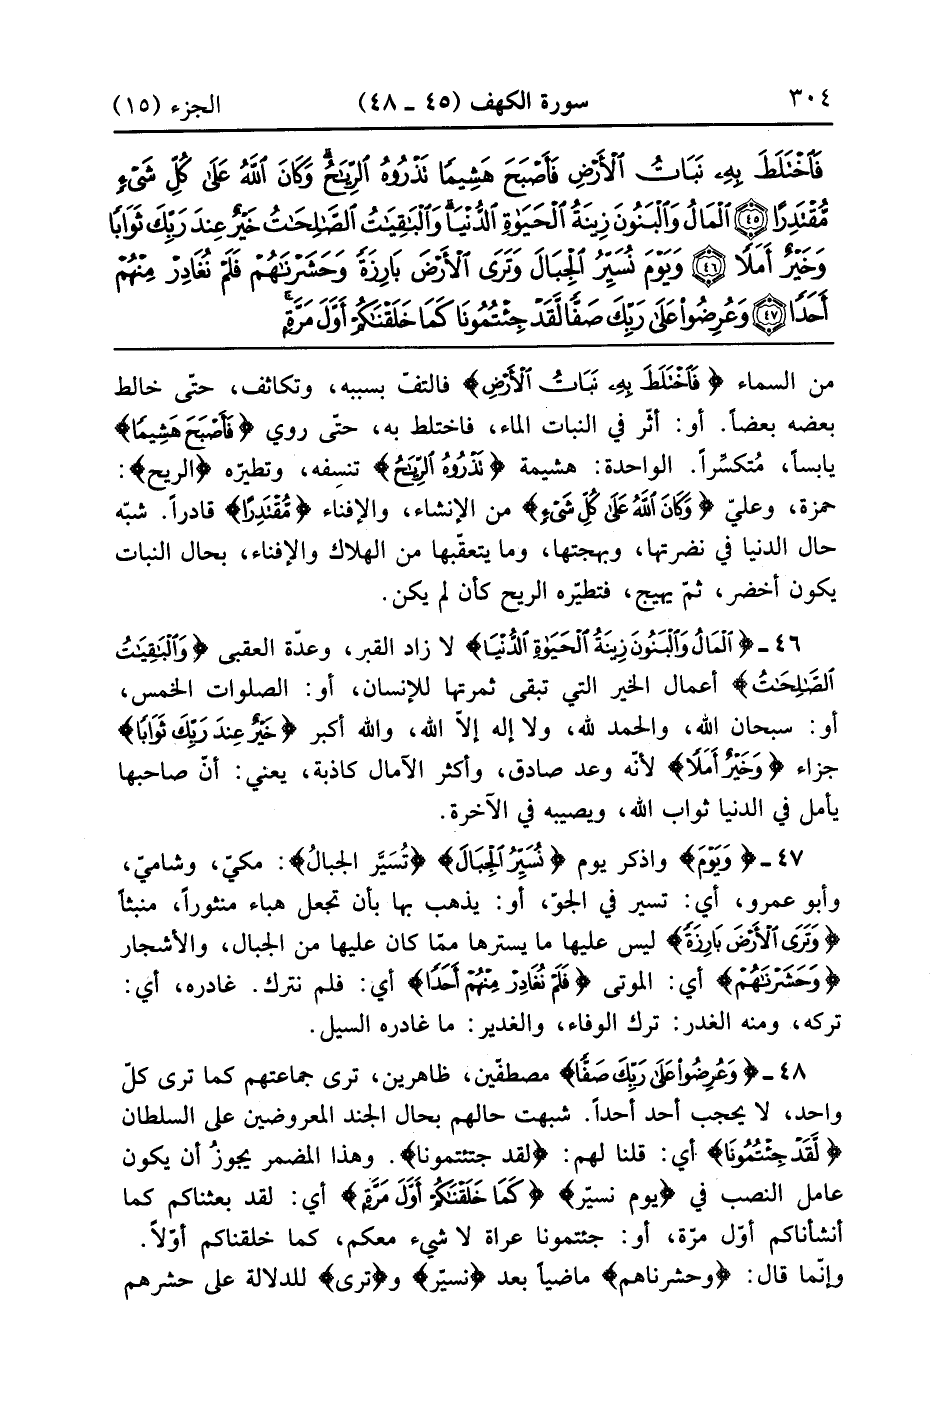 ٣٠٤ سورة الكهف (٤٥ ـ ٤٨) الجزء (١٥)
فَٱخْتَلَطَ بِهِۦ نَبَاتُ ٱلْأَرْضِ فَأَصْبَحَ هَشِيمًا تَذْرُوهُ ٱلرِّيَٰحُ وَكَانَ ٱللَّهُ عَلَىٰ كُلِّ شَىْءٍ
مُّقْتَدِرًا ٤٥ ٱلْمَالُ وَٱلْبَنُونَ زِينَةُ ٱلْحَيَوٰةِ ٱلدُّنْيَا وَٱلْبَٰقِيَٰتُ ٱلصَّٰلِحَٰتُ خَيْرٌ عِندَ رَبِّكَ ثَوَابًا
وَخَيْرٌ أَمَلًا ٤٦ وَيَوْمَ نُسَيِّرُ ٱلْجِبَالَ وَتَرَى ٱلْأَرْضَ بَارِزَةً وَحَشَرْنَٰهُمْ فَلَمْ نُغَادِرْ مِنْهُمْ
أَحَدًا ٤٧ وَعُرِضُوا۟ عَلَىٰ رَبِّكَ صَفًّا لَّقَدْ جِئْتُمُونَا كَمَا خَلَقْنَٰكُمْ أَوَّلَ مَرَّةٍۭ
من السماء ﴿فَٱخْتَلَطَ بِهِۦ نَبَاتُ ٱلْأَرْضِ﴾ فالتفّ بسببه، وتكاثف، حتّى خالط
بعضه بعضاً. أو: أثّر في النبات الماء، فاختلط به، حتّى روي ﴿فَأَصْبَحَ هَشِيمًا﴾
يابساً، مُتكسِّراً. الواحدة: هشيمة ﴿تَذْرُوهُ ٱلرِّيَٰحُ﴾ تنسفه، وتطيّره ﴿الريح﴾:
حمزة، وعليّ ﴿وَكَانَ ٱللَّهُ عَلَىٰ كُلِّ شَىْءٍ﴾ من الإنشاء، والإفناء ﴿مُّقْتَدِرًا﴾ قادراً. شبّه
حال الدنيا في نضرتها، وبهجتها، وما يتعقّبها من الهلاك والإفناء، بحال النبات
يكون أخضر، ثمّ يهيج، فتطيّره الريح كأن لم يكن.
٤٦ ـ ﴿ٱلْمَالُ وَٱلْبَنُونَ زِينَةُ ٱلْحَيَوٰةِ ٱلدُّنْيَا﴾ لا زاد القبر، وعدّة العقبى ﴿وَٱلْبَٰقِيَٰتُ
ٱلصَّٰلِحَٰتُ﴾ أعمال الخير التي تبقى ثمرتها للإنسان، أو: الصلوات الخمس،
أو: سبحان الله، والحمد لله، ولا إله إلاّ الله، والله أكبر ﴿خَيْرٌ عِندَ رَبِّكَ ثَوَابًا﴾
جزاء ﴿وَخَيْرٌ أَمَلًا﴾ لأنّه وعد صادق، وأكثر الآمال كاذبة، يعني: أنّ صاحبها
يأمل في الدنيا ثواب الله، ويصيبه في الآخرة.
٤٧ ـ ﴿وَيَوْمَ﴾ واذكر يوم ﴿نُسَيِّرُ ٱلْجِبَالَ﴾ ﴿تُسَيَّر الجبالُ﴾: مكيّ، وشاميّ،
وأبو عمرو، أي: تسير في الجوّ، أو: يذهب بها بأن تجعل هباء منثوراً، منبثاً
﴿وَتَرَى ٱلْأَرْضَ بَارِزَةً﴾ ليس عليها ما يسترها ممّا كان عليها من الجبال، والأشجار
﴿وَحَشَرْنَٰهُمْ﴾ أي: الموتى ﴿فَلَمْ نُغَادِرْ مِنْهُمْ أَحَدًا﴾ أي: فلم نترك. غادره، أي:
تركه، ومنه الغدر: ترك الوفاء، والغدير: ما غادره السيل.
٤٨ ـ ﴿وَعُرِضُوا۟ عَلَىٰ رَبِّكَ صَفًّا﴾ مصطفّين، ظاهرين، ترى جماعتهم كما ترى كلّ
واحد، لا يحجب أحد أحداً. شبهت حالهم بحال الجند المعروضين على السلطان
﴿لَّقَدْ جِئْتُمُونَا﴾ أي: قلنا لهم: ﴿لقد جئتمونا﴾. وهذا المضمر يجوزُ أن يكون
عامل النصب في ﴿يوم نسيّر﴾ ﴿كَمَا خَلَقْنَٰكُمْ أَوَّلَ مَرَّةٍۭ﴾ أي: لقد بعثناكم كما
أنشأناكم أوّل مرّة، أو: جئتمونا عراة لا شيء معكم، كما خلقناكم أوّلاً.
وإنّما قال: ﴿وحشرناهم﴾ ماضياً بعد ﴿نسيّر﴾ و﴿ترى﴾ للدلالة على حشرهم